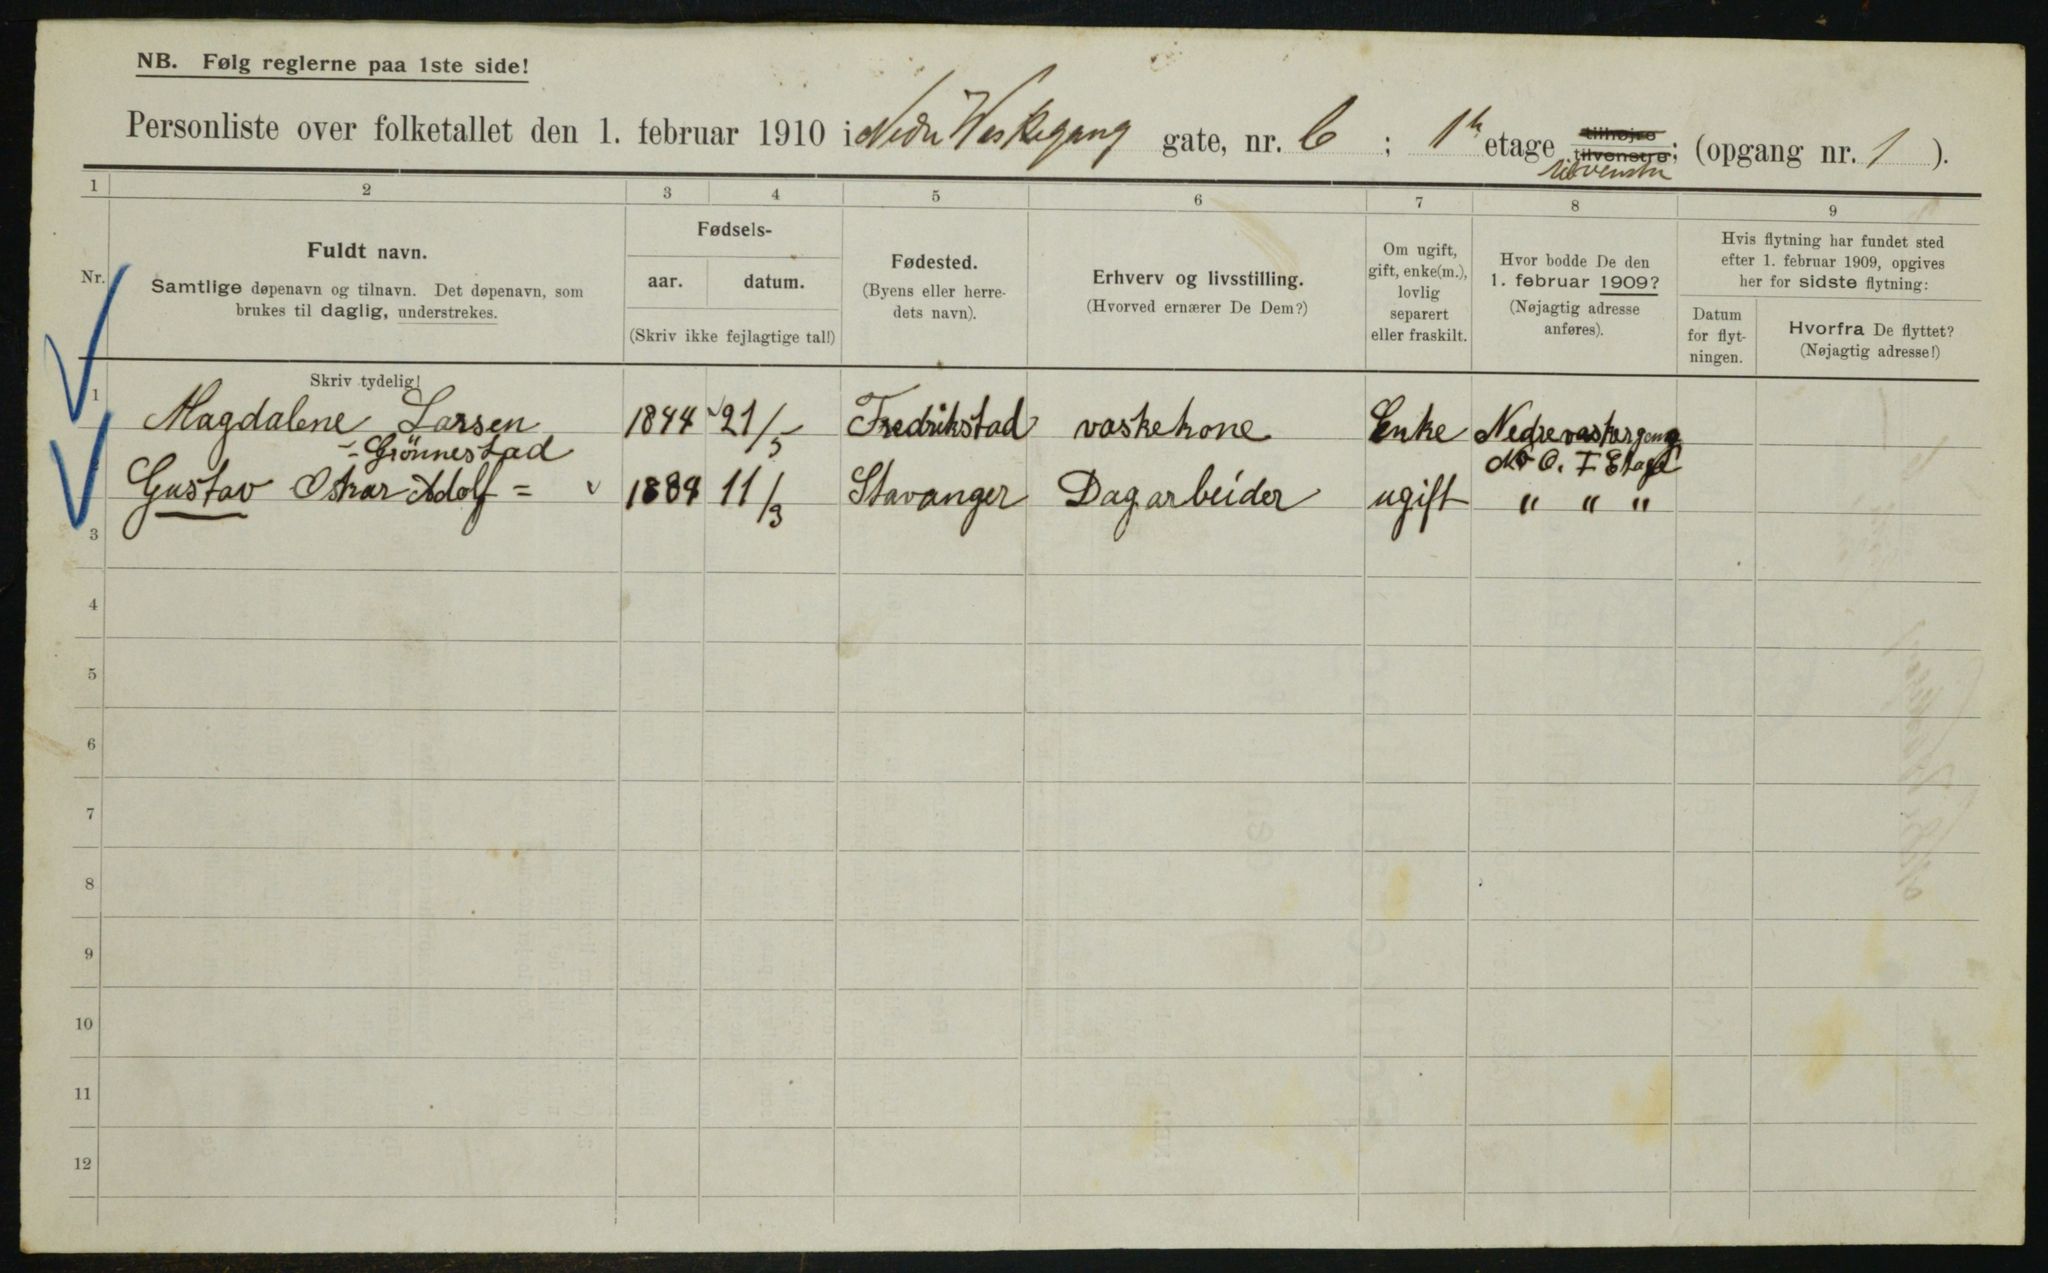 NB. Følg reglerne paa 1ste side!
Personliste over folketallet den 1. februar 1910 i Nedre Waskegang gate, nr. 6 ; 1ste etage tilhøjre tilvenstre; (opgang nr. 1 ).
tilvenstre
1 2 3 4 5 6 7 8 9
Nr.
Fuldt navn.
Samtlige døpenavn og tilnavn. Det døpenavn, som
brukes til daglig, understrekes.
Skriv tydelig!
Fødsels-
aar. datum.
(Skriv ikke fejlagtige tal!)
Fødested.
(Byens eller herre-
dets navn).
Erhverv og livsstilling.
(Hvorved ernærer De Dem?)
Om ugift,
gift, enke(m.),
lovlig
separert
eller fraskilt.
Hvor bodde De den
1. februar 1909?
(Nøjagtig adresse
anføres).
Hvis flytning har fundet sted
efter 1. februar 1909, opgives
her for sidste flytning:
Datum
for flyt-
ningen.
Hvorfra De flyttet?
(Nøjagtig adresse!)
1 Magdalene Larsen 1844 21/5 Fredrikstad vaskekone Enke Nedrevaskergang
= Grönnestad No 6. I Etage
Gustav Oskar Adolf = 1889 11/3 Stavanger Dagarbeider ugift " " "
3
4
5
6
7
8
9
10
11
12